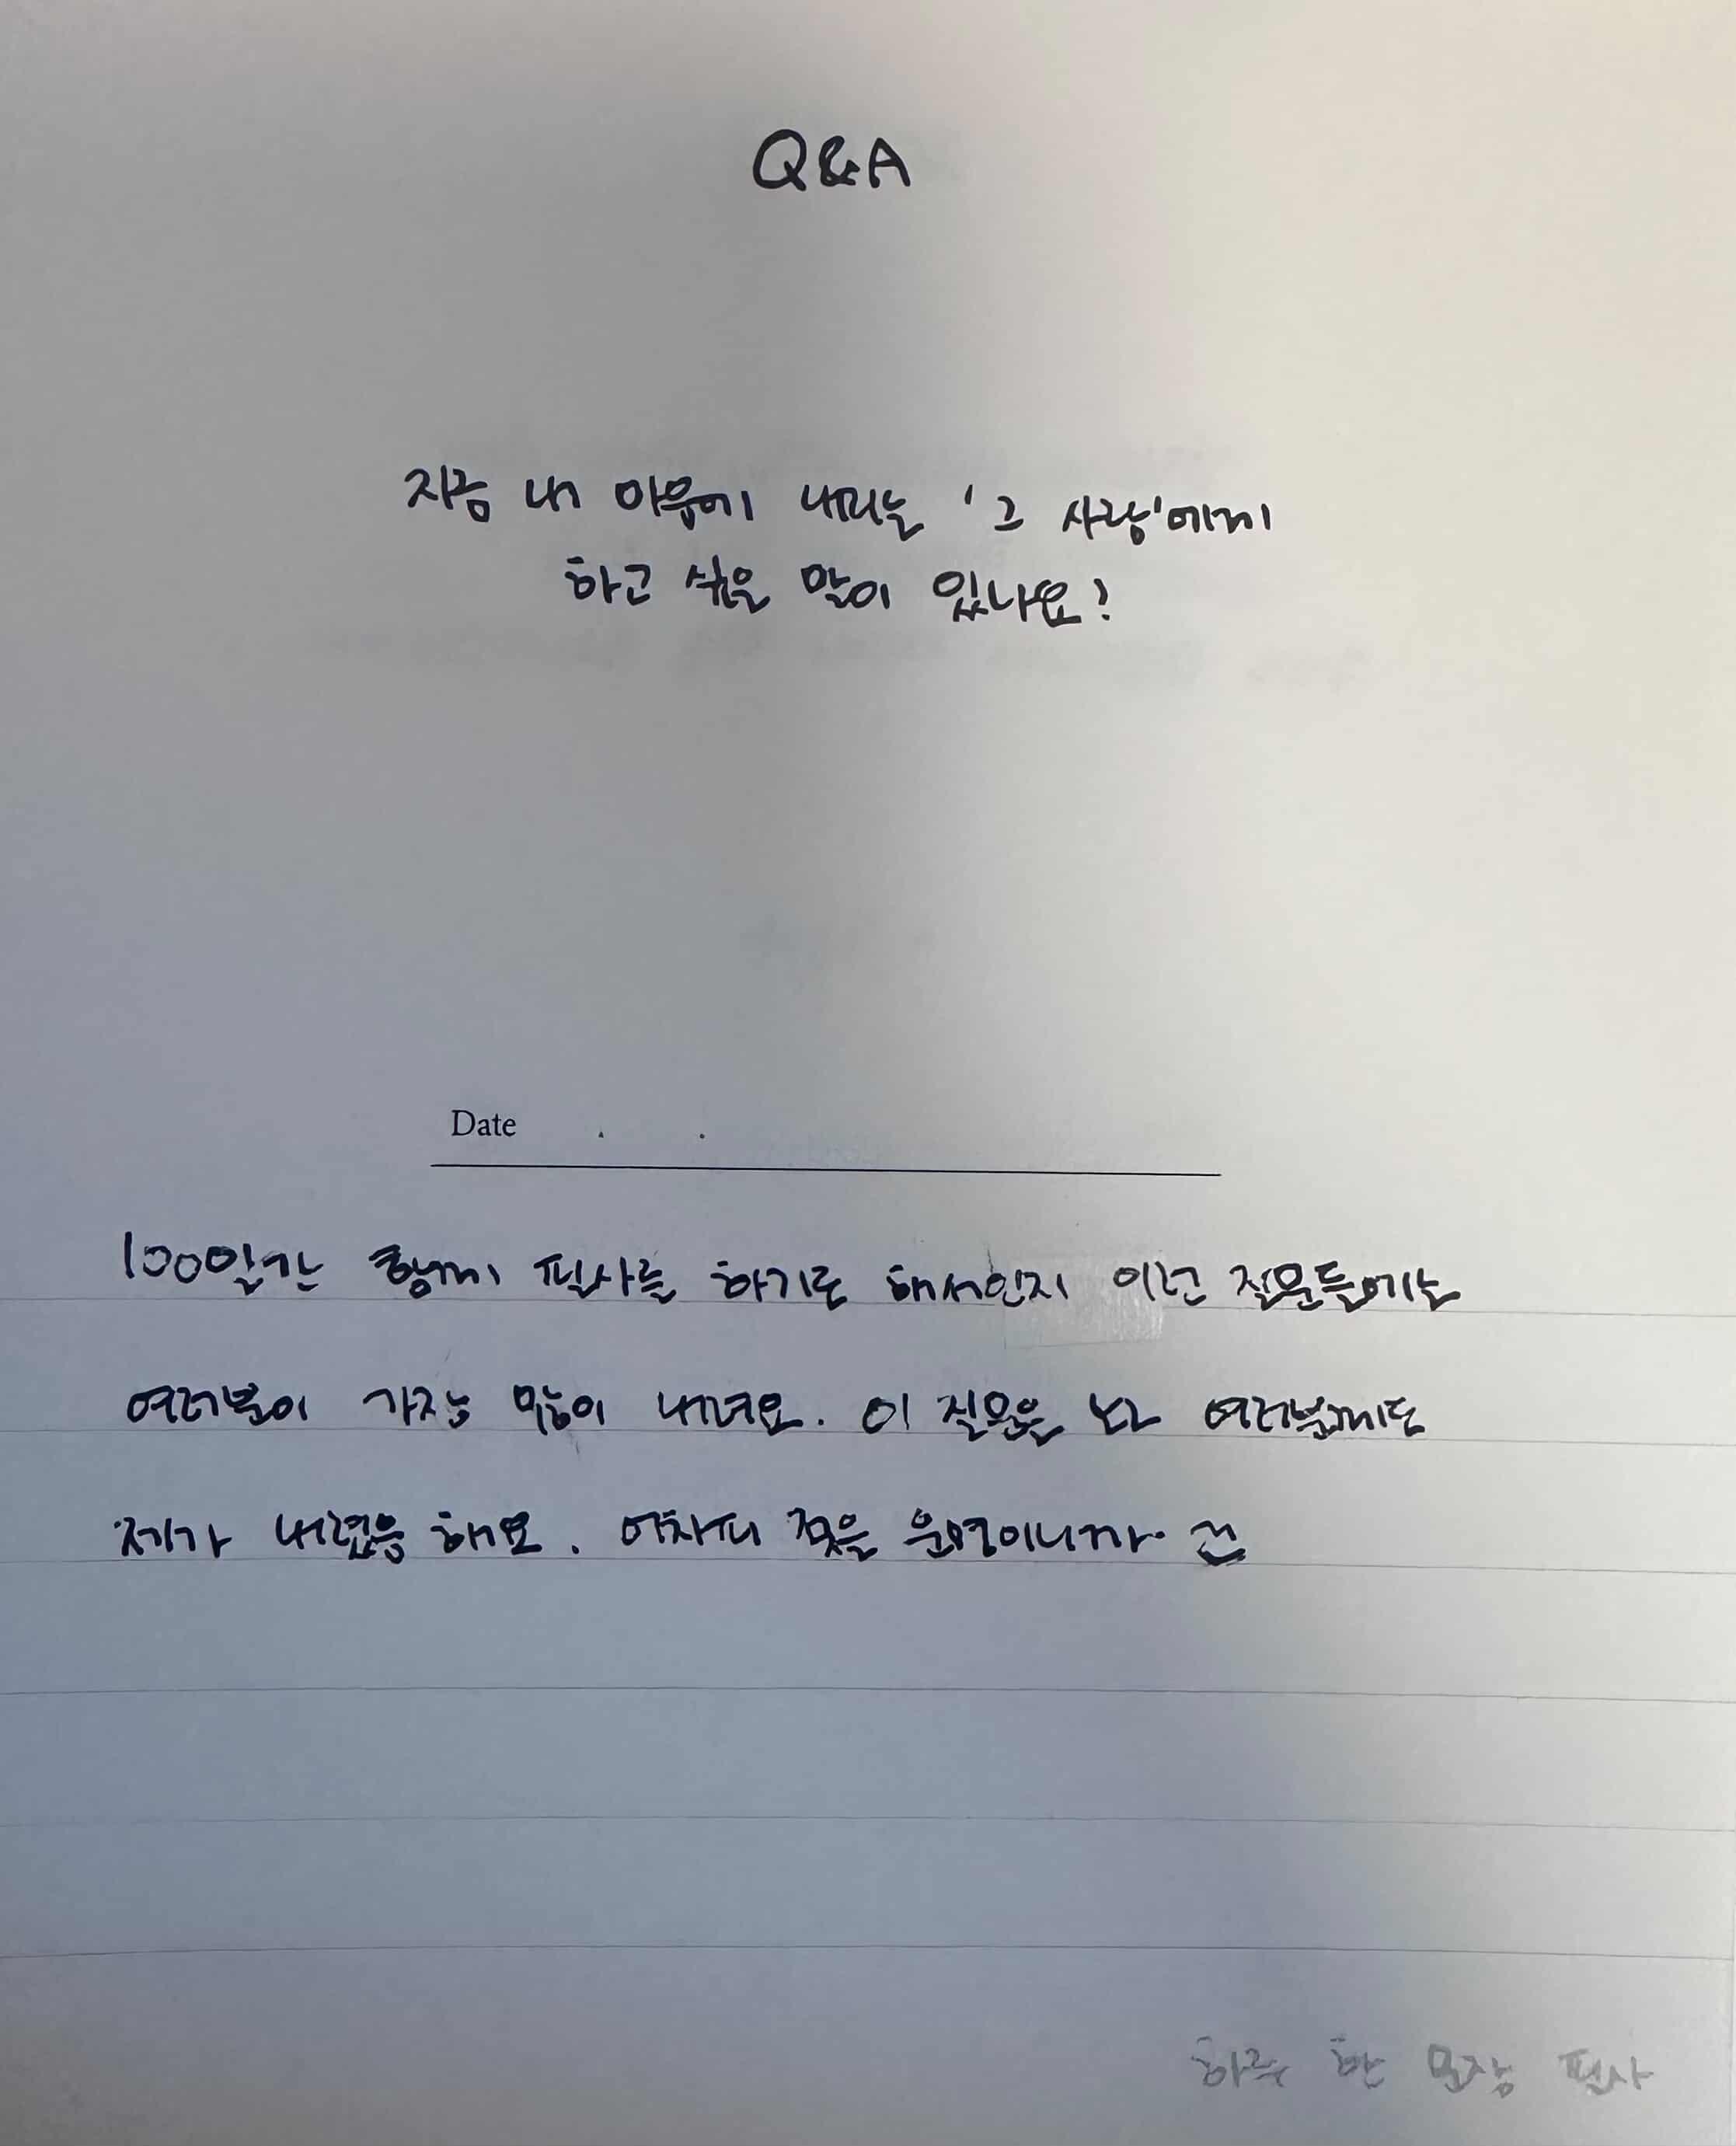 Q&A
지금 내 마음에 내리는 '그 사랑'에게
하고 싶은 말이 있나요?
Date . .
100일간 함께 필사를 하기로 해서인지 이런 질문들에는
여러분이 가장 많이 내려요. 이 질문을 보고 여러분께도
제가 내렸음 해요. 어차피 젖은 운명이니까.
하루 한 문장 필사